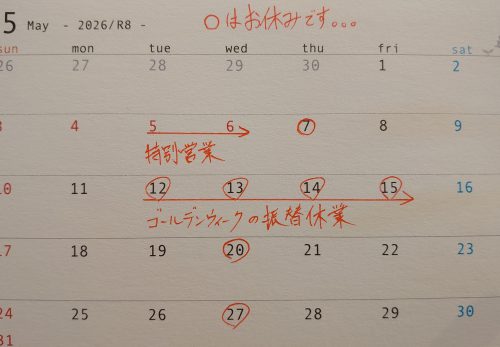 5 May - 2026/R8 - ○はお休みです。。。
sun mon tue wed thu fri sat
26 27 28 29 30 1 2
3 4 5 6 7 8 9
特別営業
10 11 12 13 14 15 16
ゴールデンウィークの振替休業
17 18 19 20 21 22 23
24 25 26 27 28 29 30
31